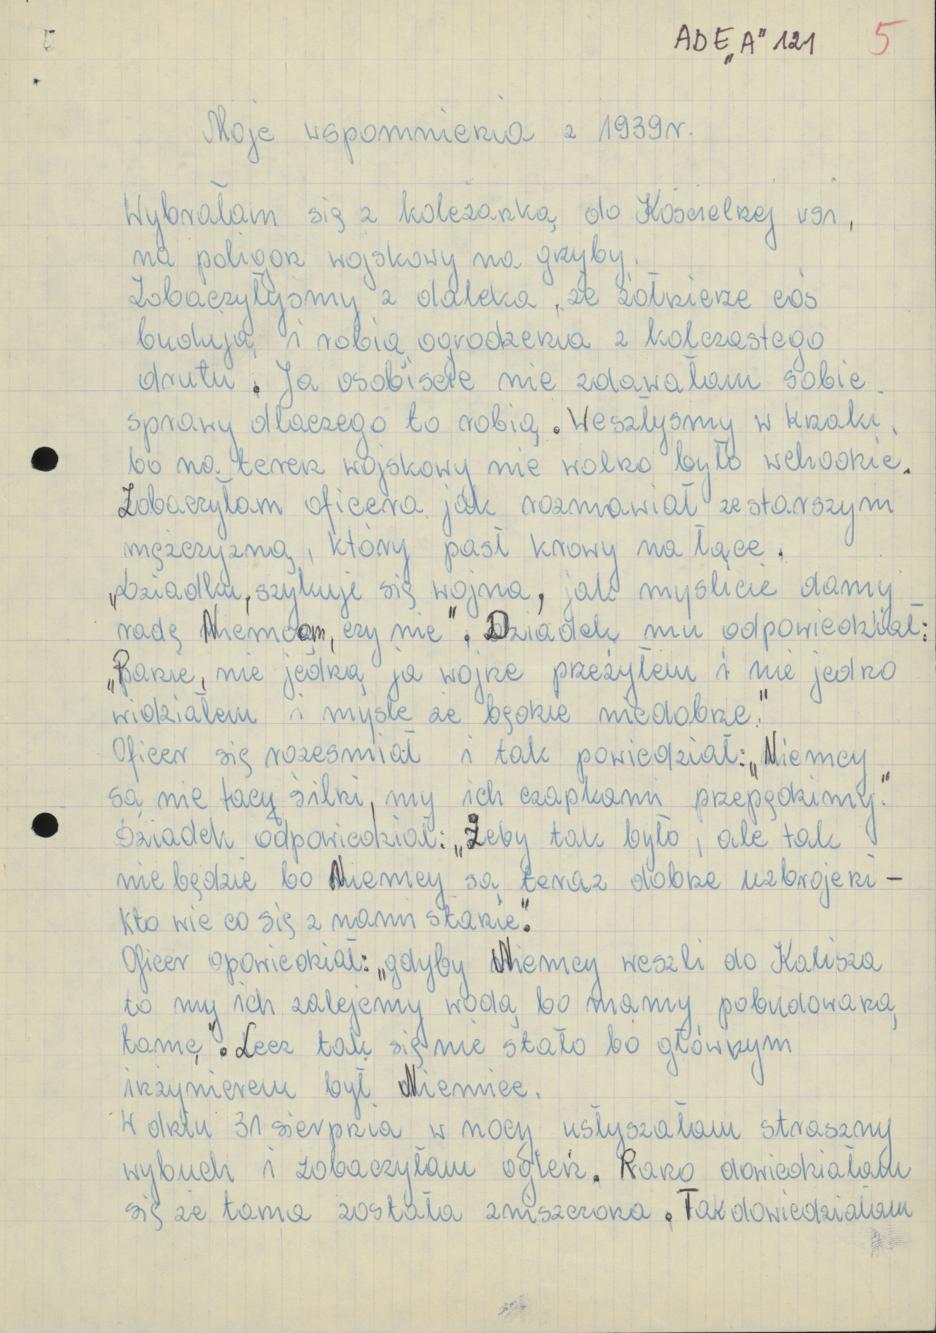 ADE „A" 121 5
Moje wspomnienia z 1939r.
Wybrałam się z koleżanką do Kościelnej wsi,
na poligon wojskowy na grzyby.
Zobaczyłyśmy z daleka, że żołnierze coś
budują i robią ogrodzenia z kolczastego
drutu. Ja osobiscie nie zdawałam sobie
sprawy dlaczego to robią. Weszłyśmy w krzaki,
bo na teren wojskowy nie wolno było wchodzić.
Zobaczyłam oficera jak rozmawiał ze starszym
mężczyzną, który pasł krowy na łące.
„Dziadku, szykuje się wojna, jak myslicie damy
radę Niemcom, czy nie". Dziadek mu odpowiedział:
„Panie, nie jedną ja wojnę przeżyłem i nie jedno
widziałem i mysle że będzie niedobrze."
Oficer się rozesmiał i tak powiedział: „Niemcy
są nie tacy silni, my ich czapkami przepędzimy."
Dziadek odpowiedział: „Żeby tak było, ale tak
nie będzie bo Niemcy są teraz dobrze uzbrojeni –
kto wie co się z nami stanie".
Oficer opowiedział: „gdyby Niemcy weszli do Kalisza
to my ich zalejemy wodą bo mamy pobudowaną
tamę". Lecz tak się nie stało bo głównym
inżynierem był Niemiec.
W dniu 31 sierpnia w nocy usłyszałam straszny
wybuch i zobaczyłam ogień. Rano dowiedziałam
się że tama została zniszczona. Tak dowiedziałam